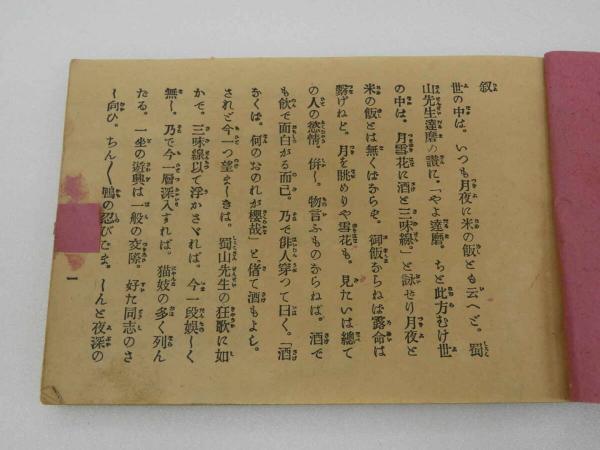 叙
世の中は。いつも月夜に米の飯とも云へど。蜀
山先生達磨の讃に。「やよ達磨。ちと此方むけ世
の中は。月雪花に酒と三味線。」と詠せり月夜と
米の飯とは無くはならぞ。御飯ならねば露命は
繋げねど。月を眺めりや雪花も。見たいは總て
の人の慾情。併し。物言ふものならねば。酒で
も飲で面白がる而已。乃で俳人穿つて曰く。「酒
なくは。何のおのれが櫻哉」と、偖て酒もよし。
されど今一つ望ましきは。蜀山先生の狂歌に如
かで。三味線以て浮かさゞれば。今一段娯しく
無し。乃で今一層深入すれば。猫妓の多く列ん
たる。一坐の遊興は一般の交際。好た同志のさ
し向ひ。ちん〱鴨の忍びたま。しんと夜深の
一